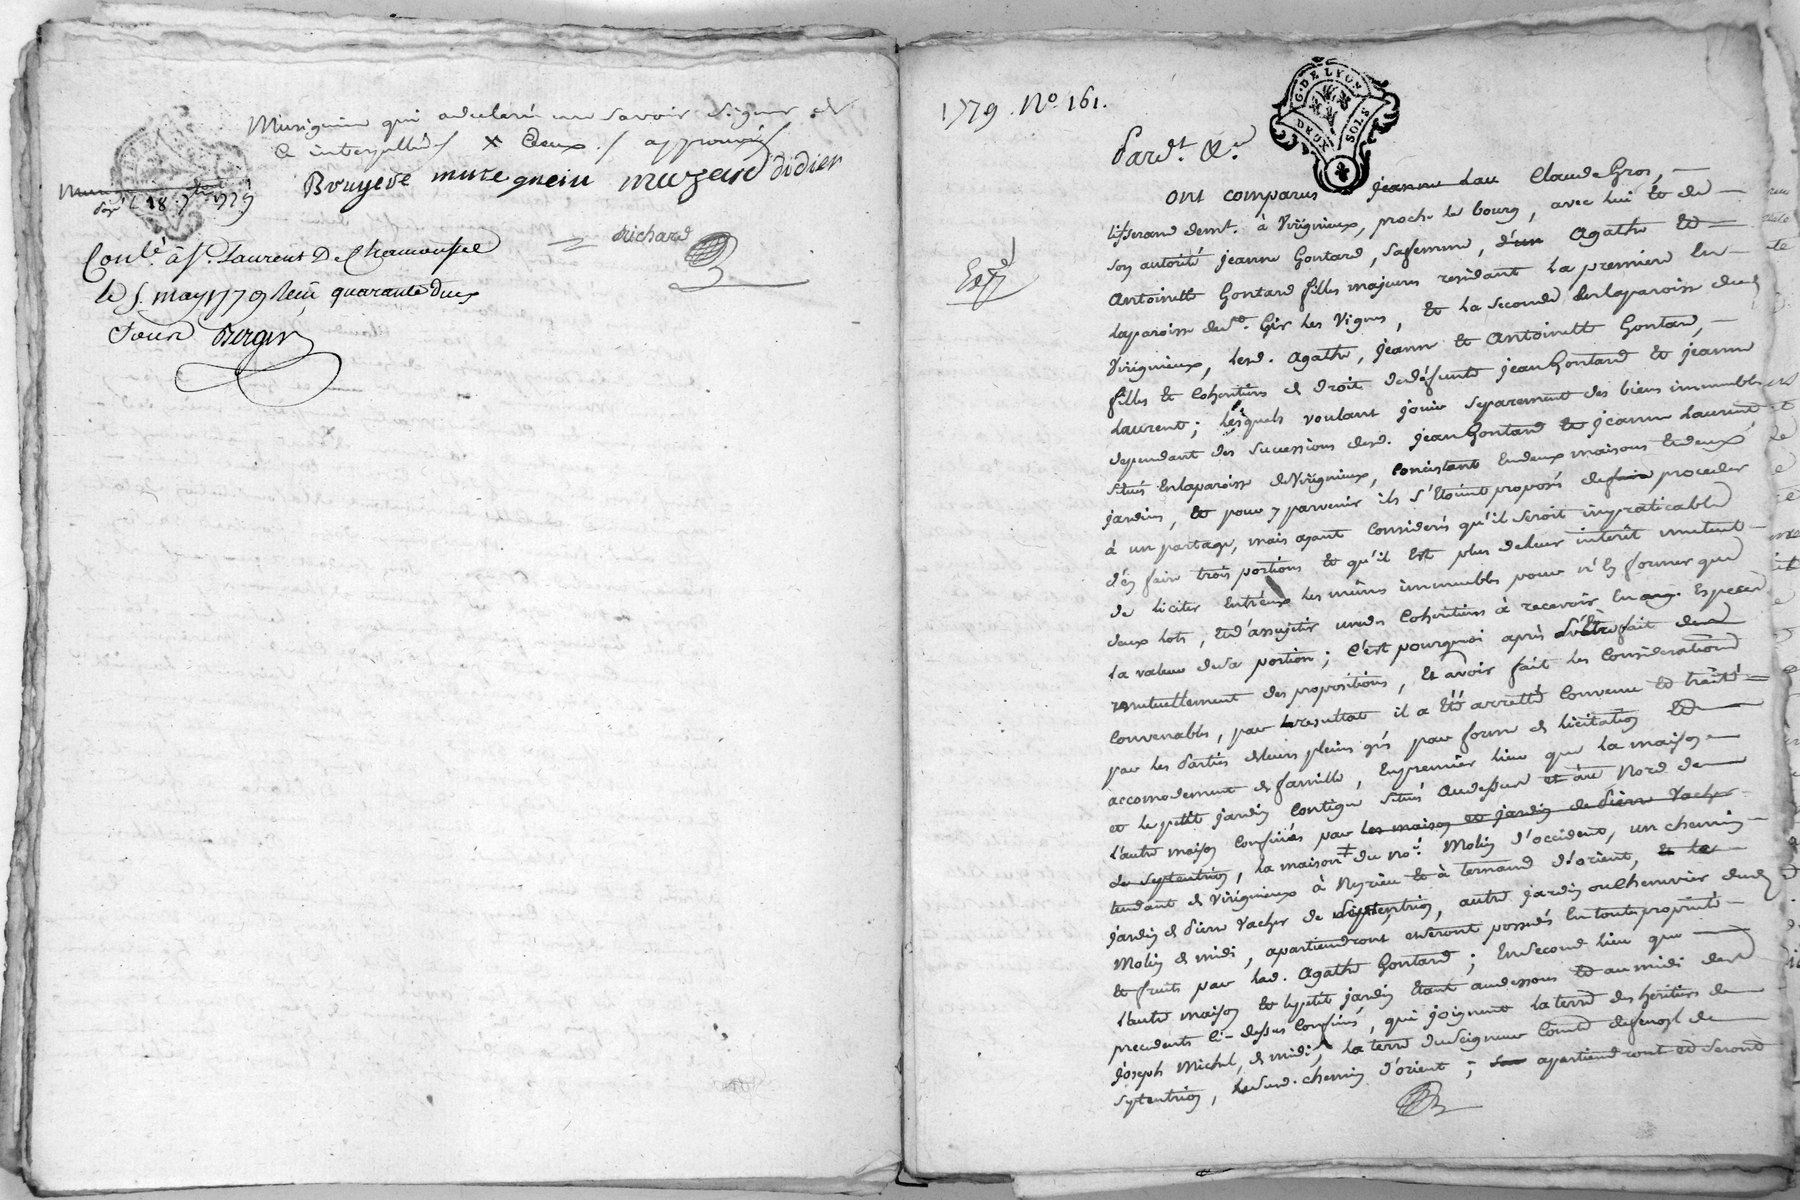 Musiguin qui a declaré ne savoir signer de
ce interpellés / x Deux / approuvés
Bruyere musegneiu mazard didier
18 7bre 1729
Richard
Conlé à St. Laurent De Chamousset
le 5. may 1779 Reçu quarante deux
Sous Bergier
1779. No. 161.
Pard.t &c.
G. DE LYON
DEUX SOLS
Exp.d
ont comparus jeanne Lau Claude Gros,
tisserand demt. à Virigneux, proche le bourg, avec lui et de
son autorité jeanne Gontard, sa femme, d'un Agathe et
Antoinette Gontard filles majeures residant la premiere en
la paroisse de St. Cir les Vignes, et la seconde en la paroisse dud.
Virigneux, lesd. Agathe, jeanne et Antoinette Gontard,
filles et cohéritiers de droit de défunts jean Gontard et jeanne
Laurent; lesquels voulant jouir separement des biens immeubles
dependant des successions desd. jean Gontard et jeanne Laurent
situés en la paroisse de Virigneux, concistant en deux maisons et deux
jardins, et pour y parvenir ils s'étoint proposés de faire proceder
à un partage, mais ayant considerés qu'il seroit impraticable
d'en faire trois portions et qu'il est plus de leur intérêt mutuel
de liciter entr'eux les mêmes immeubles pour n'en former que
deux lots, et d'assujetir un des cohéritiers à recevoir en arg. especes
la valeur de sa portion; c'est pourquoi après s'être fait
mutuellement des propositions, et avoir fait les considerations
convenables, par le resultat il a été arretté convenu et traité
par les Parties de leurs pleins grés par forme de licitation et
accomodement de famille, en premier lieu que la maison
et le petit jardin contigu situés au dessus et au Nord de
l'autre maison confinés par les maison et jardin de Pierre Vacher
de septentrion, la maison ‡ du no.é Molin d'occident, un chemin
tendant de Virigneux à Neyrieu et à Ternand d'orient, et le
jardin de Pierre Vacher de septentrion, autre jardin ou chenevier dud.
Molin de midi, apartiendront et seront possedés en toute proprieté
et fruits par lad. Agathe Gontard; En second lieu que
l'autre maison et le petit jardin étant au dessous et au midi des
precedents ci-dessus confinés, qui joignent la terre des héritiers de
joseph Michel, de midi, la terre du seigneur Comte de
septentrion, le susd. chemin d'orient; apartiendront et seront